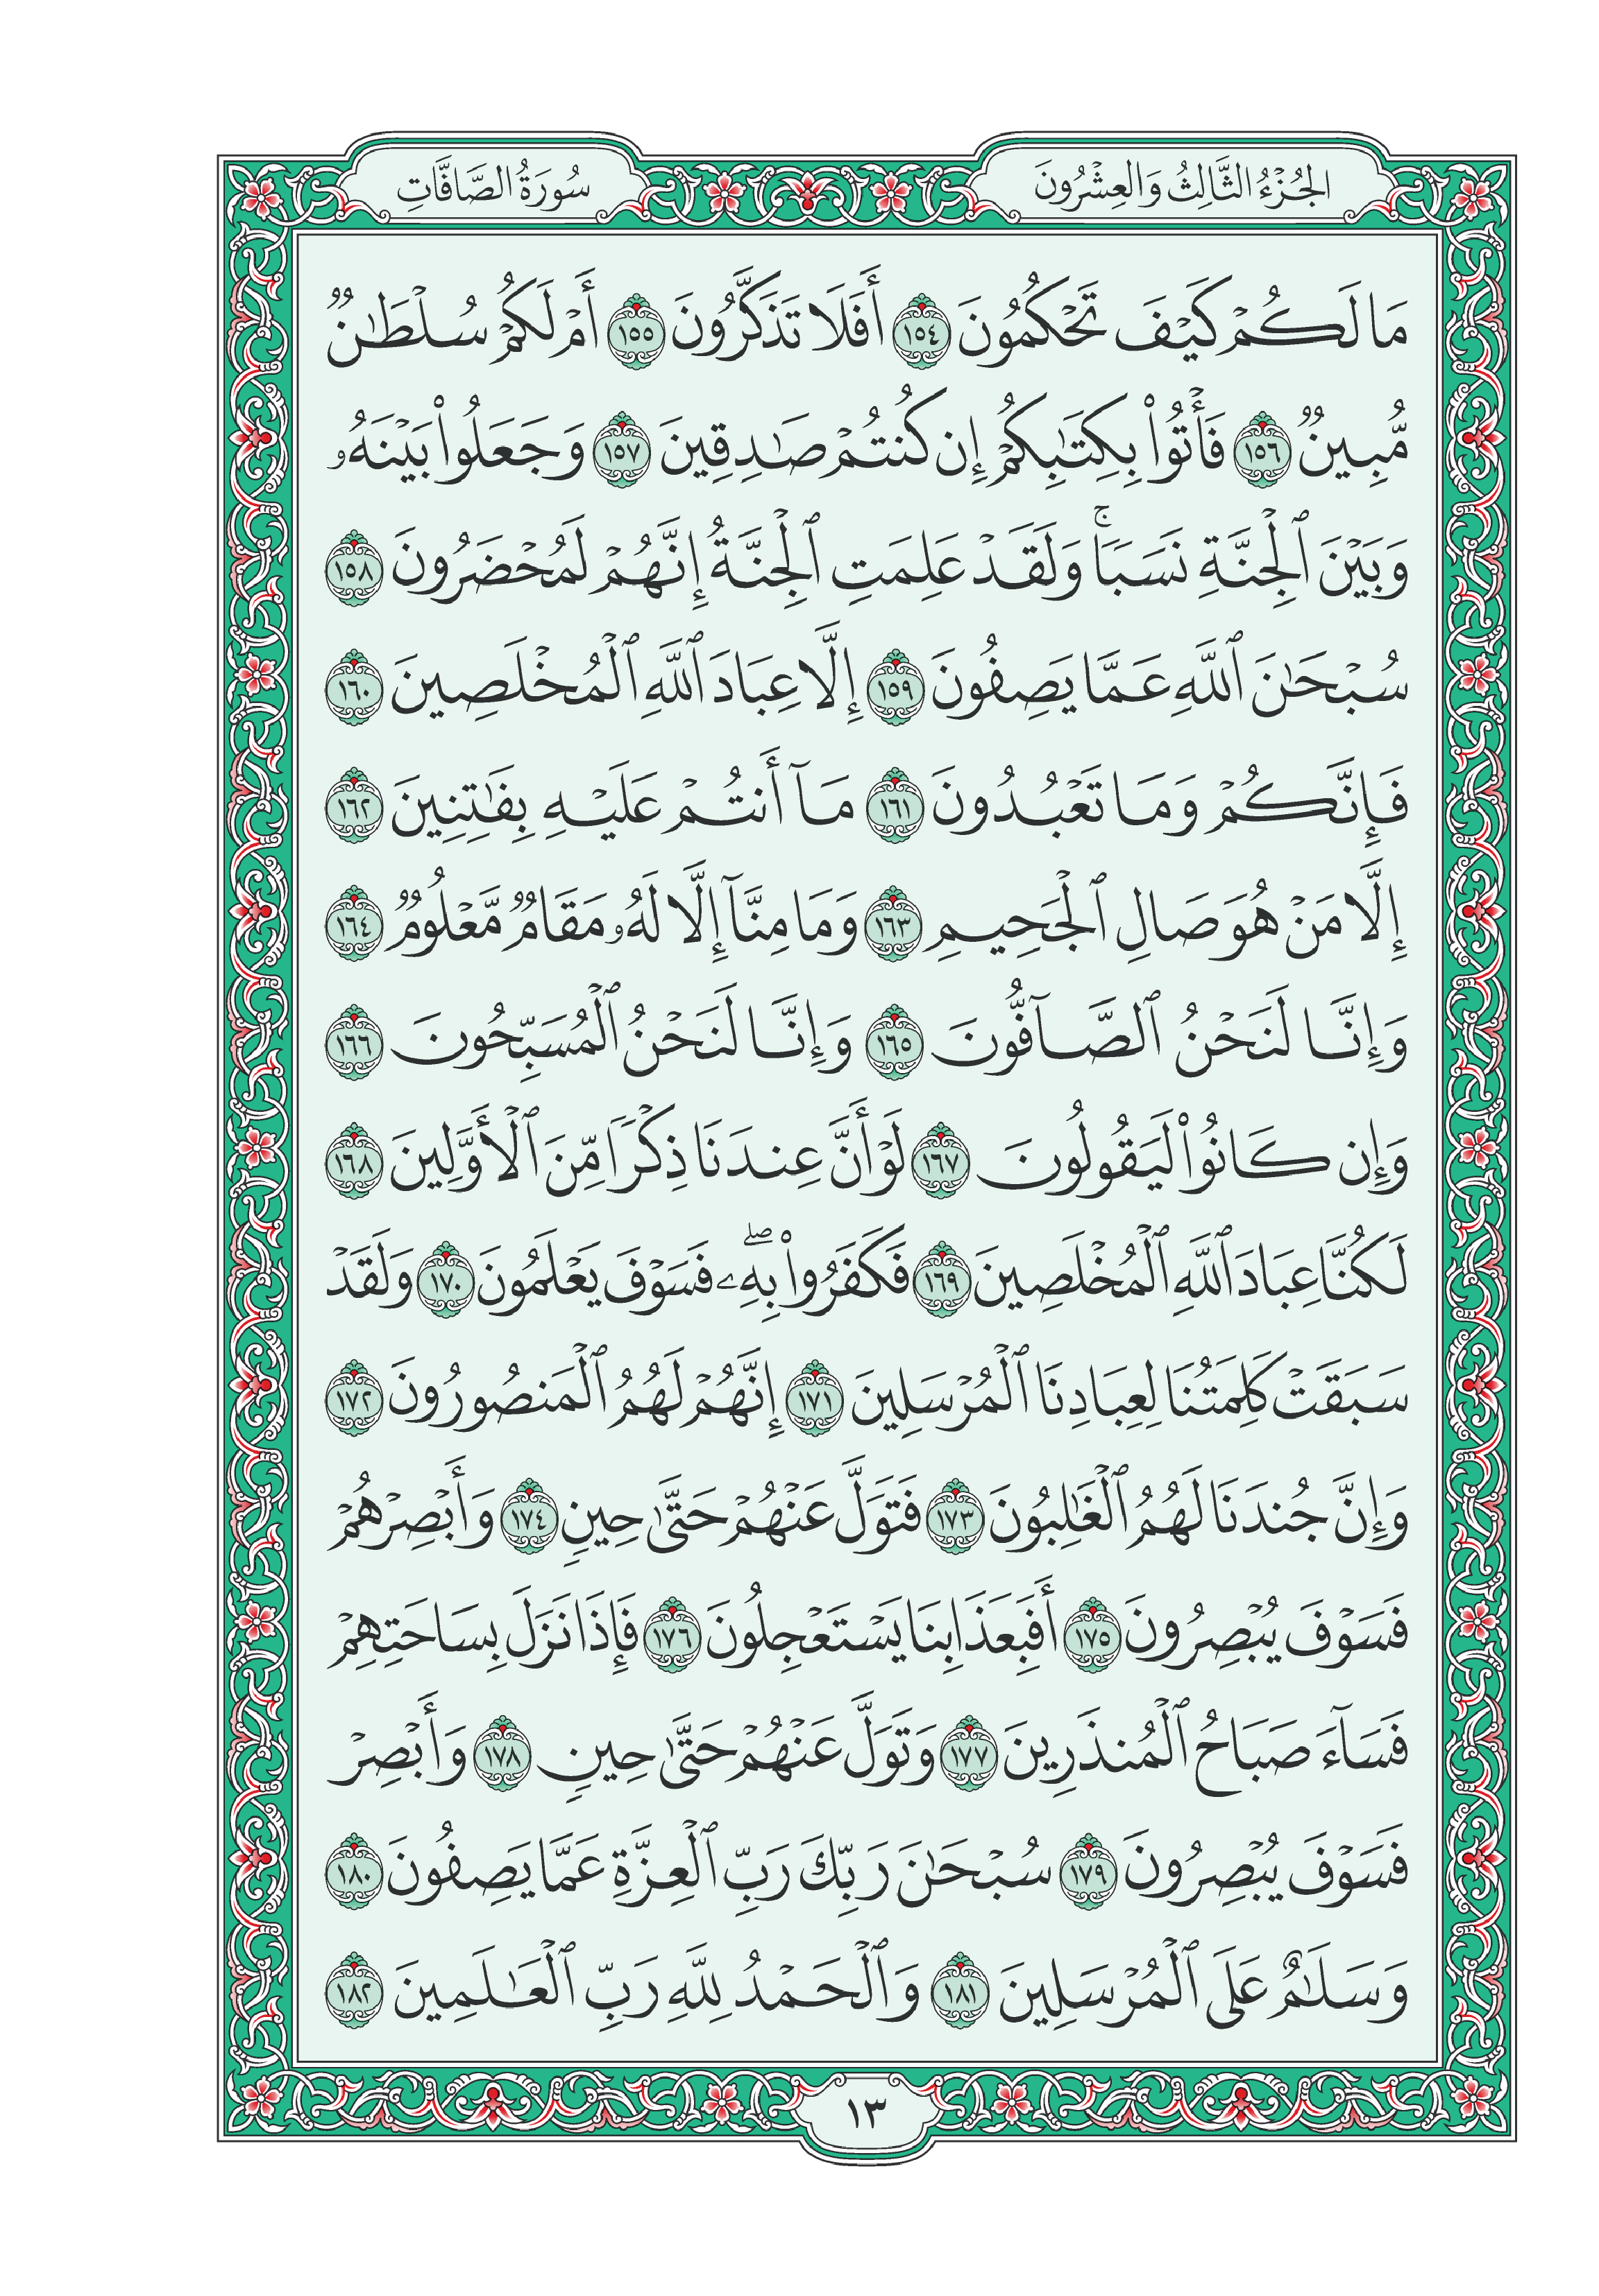 الجُزْءُ الثَّالِثُ وَالعِشْرُونَ
سُورَةُ الصَّافَّاتِ
مَا لَكُمۡ كَيۡفَ تَحۡكُمُونَ ١٥٤ أَفَلَا تَذَكَّرُونَ ١٥٥ أَمۡ لَكُمۡ سُلۡطَٰنٞ
مُّبِينٞ ١٥٦ فَأۡتُواْ بِكِتَٰبِكُمۡ إِن كُنتُمۡ صَٰدِقِينَ ١٥٧ وَجَعَلُواْ بَيۡنَهُۥ
وَبَيۡنَ ٱلۡجِنَّةِ نَسَبٗاۚ وَلَقَدۡ عَلِمَتِ ٱلۡجِنَّةُ إِنَّهُمۡ لَمُحۡضَرُونَ ١٥٨
سُبۡحَٰنَ ٱللَّهِ عَمَّا يَصِفُونَ ١٥٩ إِلَّا عِبَادَ ٱللَّهِ ٱلۡمُخۡلَصِينَ ١٦٠
فَإِنَّكُمۡ وَمَا تَعۡبُدُونَ ١٦١ مَآ أَنتُمۡ عَلَيۡهِ بِفَٰتِنِينَ ١٦٢
إِلَّا مَنۡ هُوَ صَالِ ٱلۡجَحِيمِ ١٦٣ وَمَا مِنَّآ إِلَّا لَهُۥ مَقَامٞ مَّعۡلُومٞ ١٦٤
وَإِنَّا لَنَحۡنُ ٱلصَّآفُّونَ ١٦٥ وَإِنَّا لَنَحۡنُ ٱلۡمُسَبِّحُونَ ١٦٦
وَإِن كَانُواْ لَيَقُولُونَ ١٦٧ لَوۡ أَنَّ عِندَنَا ذِكۡرٗا مِّنَ ٱلۡأَوَّلِينَ ١٦٨
لَكُنَّا عِبَادَ ٱللَّهِ ٱلۡمُخۡلَصِينَ ١٦٩ فَكَفَرُواْ بِهِۦۖ فَسَوۡفَ يَعۡلَمُونَ ١٧٠ وَلَقَدۡ
سَبَقَتۡ كَلِمَتُنَا لِعِبَادِنَا ٱلۡمُرۡسَلِينَ ١٧١ إِنَّهُمۡ لَهُمُ ٱلۡمَنصُورُونَ ١٧٢
وَإِنَّ جُندَنَا لَهُمُ ٱلۡغَٰلِبُونَ ١٧٣ فَتَوَلَّ عَنۡهُمۡ حَتَّىٰ حِينٖ ١٧٤ وَأَبۡصِرۡهُمۡ
فَسَوۡفَ يُبۡصِرُونَ ١٧٥ أَفَبِعَذَابِنَا يَسۡتَعۡجِلُونَ ١٧٦ فَإِذَا نَزَلَ بِسَاحَتِهِمۡ
فَسَآءَ صَبَاحُ ٱلۡمُنذَرِينَ ١٧٧ وَتَوَلَّ عَنۡهُمۡ حَتَّىٰ حِينٖ ١٧٨ وَأَبۡصِرۡ
فَسَوۡفَ يُبۡصِرُونَ ١٧٩ سُبۡحَٰنَ رَبِّكَ رَبِّ ٱلۡعِزَّةِ عَمَّا يَصِفُونَ ١٨٠
وَسَلَٰمٌ عَلَى ٱلۡمُرۡسَلِينَ ١٨١ وَٱلۡحَمۡدُ لِلَّهِ رَبِّ ٱلۡعَٰلَمِينَ ١٨٢
١٣